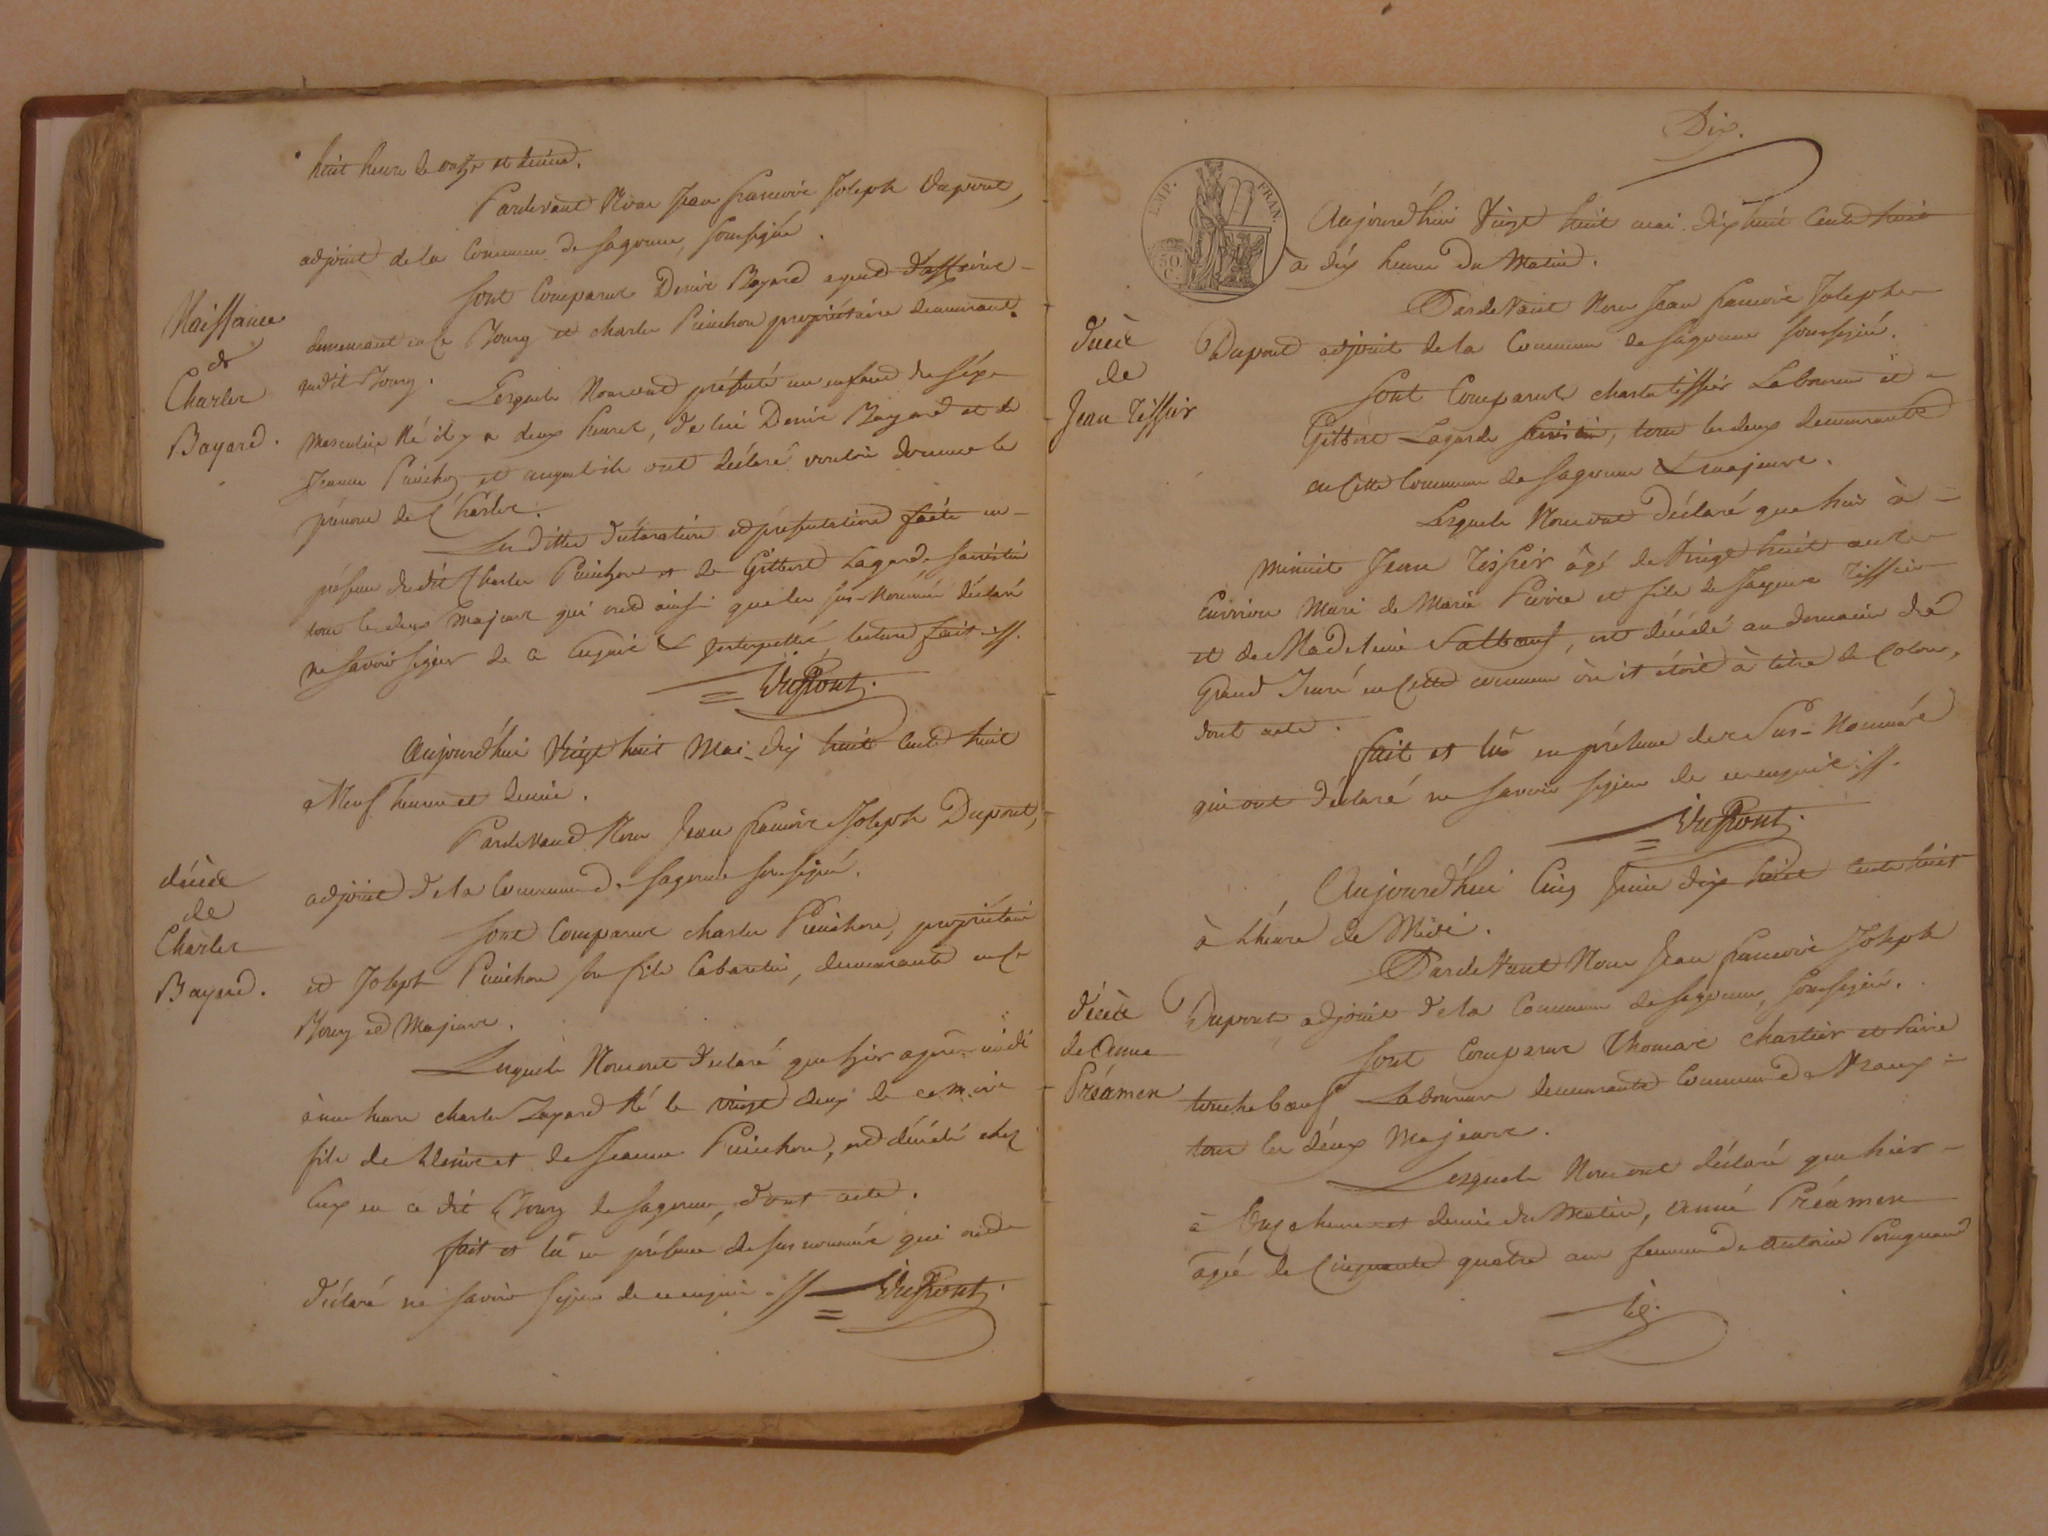 huit heure de onze et demie.
Pardevant Nous Jean françois Joseph Dupont,
adjoint de la Commune de Sagonne, soussigné.
Sont Comparus Denis Bayard agent d'affaires
demeurant en ce Bourg et charles Pinichon propriétaire demeurant
Naissance
de
Charles
Bayard.
audit Bourg.
Lesquels Nous ont présenté un enfant du sexe
Masculin Né il y a deux heures, de lui Denis Bayard et de
Jeanne Pinichon et auquel ils ont déclaré vouloir donner le
prénom de Charles.
Les dittes déclaration et présentation faite en
présence dudit Charles Pinichon et de Gilbert Lagarde sacristin
tous les deux Majeurs qui ont ainsi que les sus-Nommés déclaré
ne savoir signer de ce enquis & interpellé, lecture fait .//.
Dupont.
Aujourd'hui Vingt huit Mai dix huit Cent huit
à Neuf heures et demie.
Pardevant Nous Jean françois Joseph Dupont,
adjoint de la Commune de Sagonne soussigné.
décès
de
Charles
Bayard.
Sont Comparus charles Pinichon, propriétaire
et Joseph Pinichon son fils Cabaretier, demeurants en ce
Bourg et Majeurs.
Lesquels Nous ont déclaré que hier après midi
à une heure charles Bayard Né le vingt deux de ce mois
fils de Denis et de Jeanne Pinichon, est décédé chez
Eux en ce dit Bourg de Sagonne, dont acte.
fait et lû en présence des sus nommés qui ont
déclaré ne savoir signer de ce enquis .//. Dupont.
Dix.
EMP. FRAN.
50 C.
Aujourd'hui Vingt huit mai dix huit Cent huit
à dix heures du Matin.
Pardevant Nous Jean françois Joseph
Dupont adjoint de la Commune de Sagonne soussigné.
décès
de
Jean Tissier
Sont Comparus charles tissier Laboureur et
Gilbert Lagarde sacristin, tous les deux demeurants
en Cette Commune de Sagonne & majeurs.
Lesquels Nous ont déclaré que hier à
minuit Jean Tissier âgé de Vingt huit ans
Environ Mari de Marie Pierre et fils de Jacques Tissier
et de Madeleine Salboeuf, est décédé au domaine du
Grand Juré en Cette commune où il étoit à titre de Colon,
dont acte.
fait et lû en présence des Sus-Nommés
qui ont déclaré ne savoir signer de ce enquis .//.
Dupont.
Aujourd'hui Cinq Juin dix huit Cent huit
à l'heure de Midi.
Pardevant Nous Jean françois Joseph
Dupont adjoint de la Commune de Sagonne, soussigné.
décès
de Anne
Préamen
Sont Comparus Thomas Chartier et Pierre
touchebœuf Laboureurs demeurants Commune de Vraux
tous les deux Majeurs.
Lesquels Nous ont déclaré que hier
à Onze heures et demie du Matin, Anne Préamen
agée de Cinquante quatre ans femme de Antoine